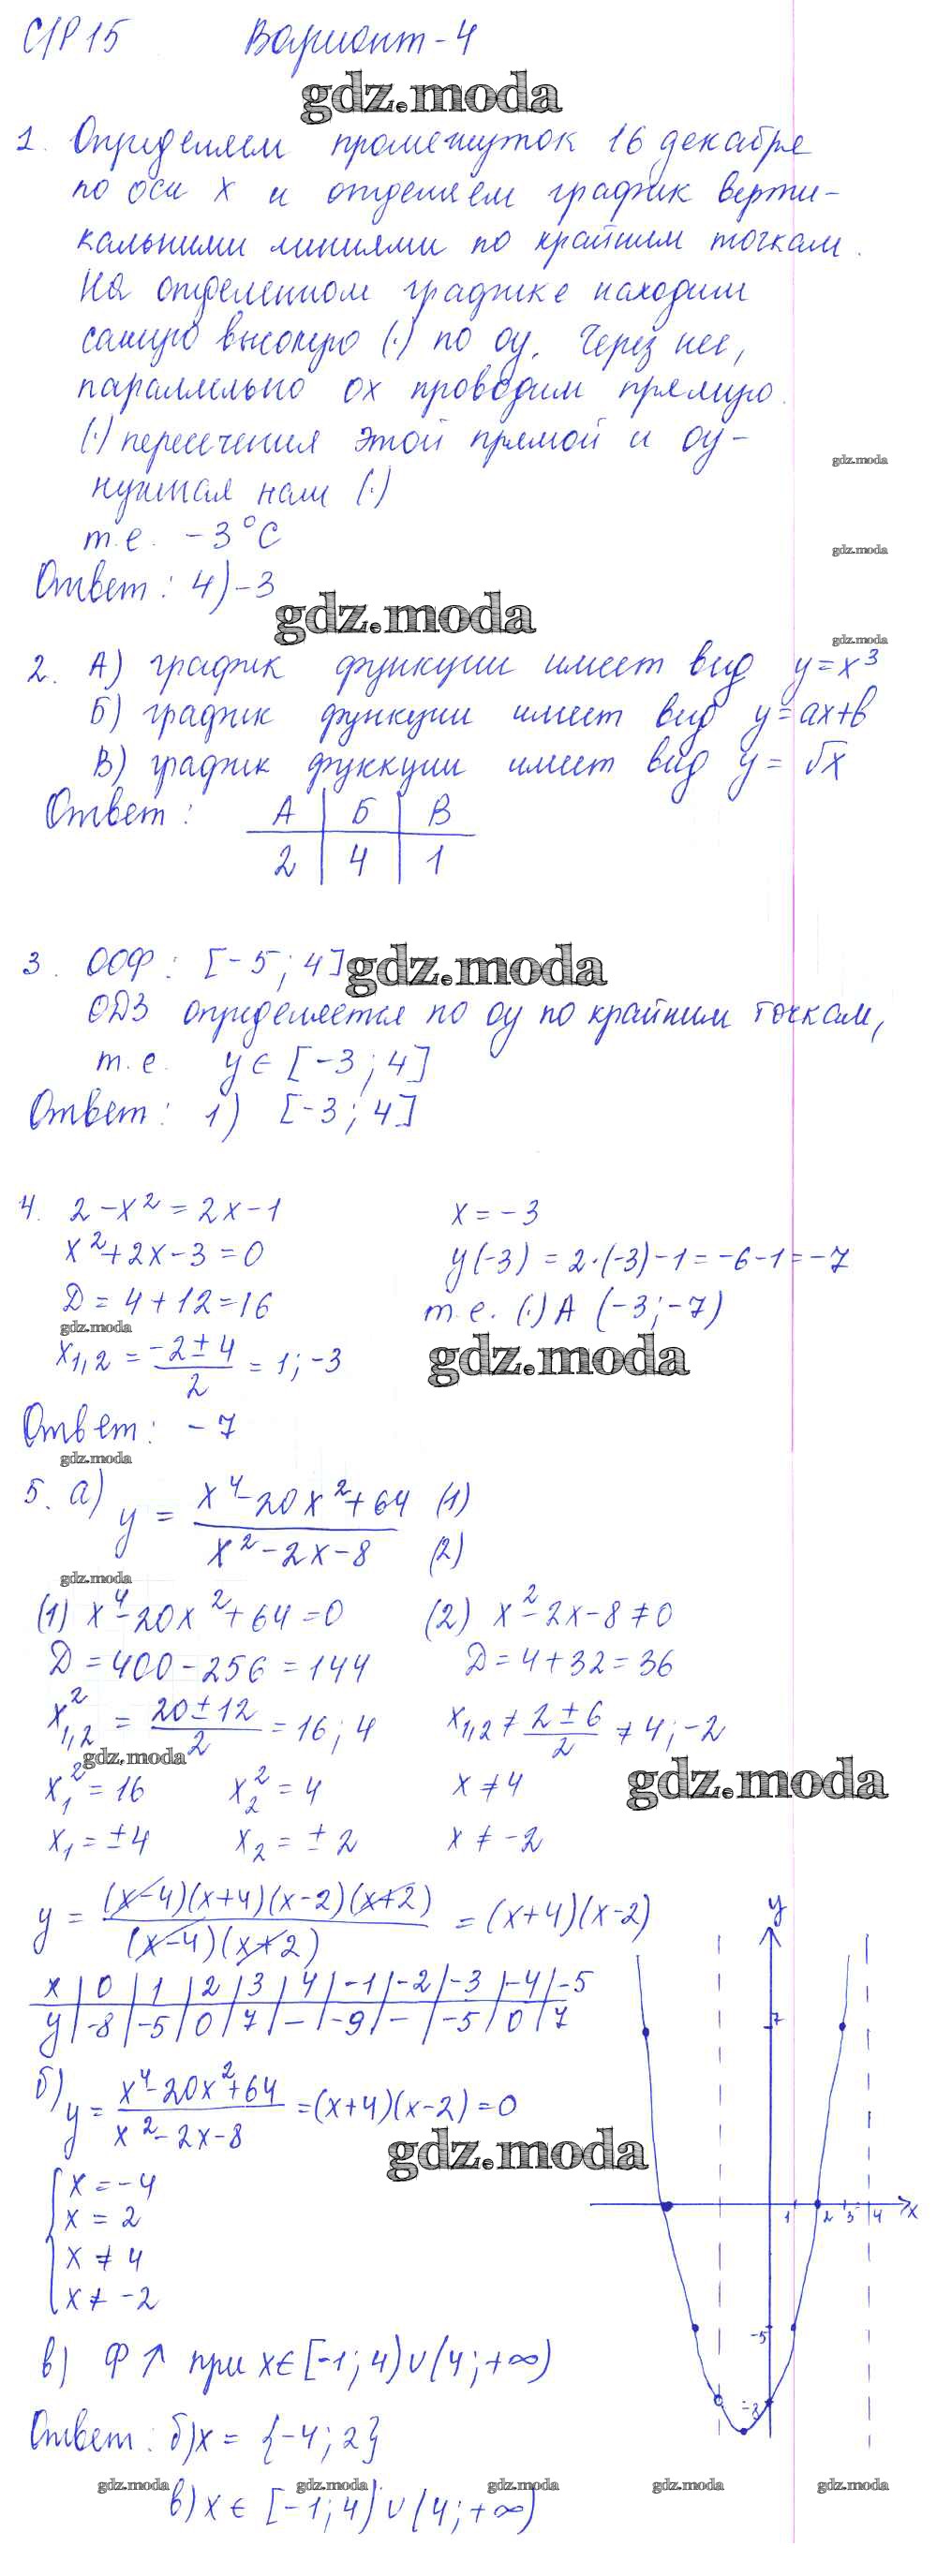 С/Р 15 Вариант-4
gdz.moda
1. Определяем промежуток 16 декабря
по оси х и отделяем график верти-
кальными линиями по крайним точкам.
На отделенном графике находим
самую высокую (·) по оу. Через нее,
параллельно ох проводим прямую.
(·) пересечения этой прямой и оу-
gdz.moda
нужная нам (·)
т.е. -3°С
gdz.moda
Ответ: 4) -3
gdz.moda
gdz.moda
2. А) график функции имеет вид y=x³
Б) график функции имеет вид y=ax+b
В) график функции имеет вид y=√x
Ответ: А | Б | В
2 | 4 | 1
3. ООФ: [-5; 4]
gdz.moda
ОДЗ определяется по оу по крайним точкам,
т.е. y∈[-3; 4]
Ответ: 1) [-3; 4]
4. 2-x²=2x-1 x=-3
x²+2x-3=0 y(-3)=2·(-3)-1=-6-1=-7
Д=4+12=16 т.е. (·) А (-3; -7)
gdz.moda
x₁,₂ = (-2±4)/2 = 1; -3
gdz.moda
Ответ: -7
gdz.moda
5. а) y = (x⁴-20x²+64)/(x²-2x-8) (1) (2)
gdz.moda
(1) x⁴-20x²+64=0 (2) x²-2x-8≠0
Д=400-256=144 Д=4+32=36
x²₁,₂ = (20±12)/2 = 16; 4 x₁,₂ ≠ (2±6)/2 ≠ 4; -2
gdz.moda
x₁²=16 x₂²=4 x≠4
gdz.moda
x₁=±4 x₂=±2 x≠-2
y = ((x-4)(x+4)(x-2)(x+2))/((x-4)(x+2)) = (x+4)(x-2)
x | 0 | 1 | 2 | 3 | 4 | -1 | -2 | -3 | -4 | -5
y | -8 | -5 | 0 | 7 | - | -9 | - | -5 | 0 | 7
y
7
1 2 3 4 x
-5
б) y = (x⁴-20x²+64)/(x²-2x-8) = (x+4)(x-2)=0
gdz.moda
x=-4
x=2
x≠4
x≠-2
в) Ф↑ при x∈[-1; 4)∪(4; +∞)
Ответ: б) x={-4; 2}
gdz.moda gdz.moda gdz.moda gdz.moda gdz.moda
в) x∈[-1; 4)∪(4; +∞)